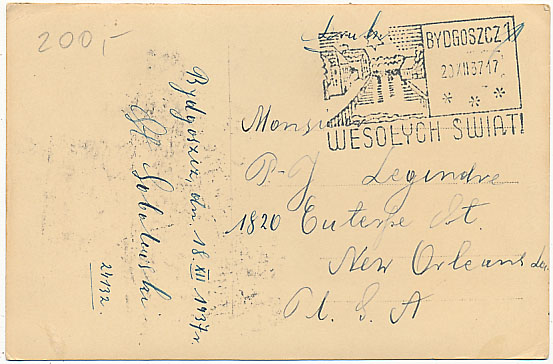 200,-
Druk
BYDGOSZCZ 1
20.XII.37.17
* * *
WESOŁYCH ŚWIĄT!
Bydgoszcz, dn. 18 XII 1937 r.
St. Sobolewski
24132.
Monsieur
P-J Legendre
1820 Euterpe St.
New Orleans La.
U. S. A